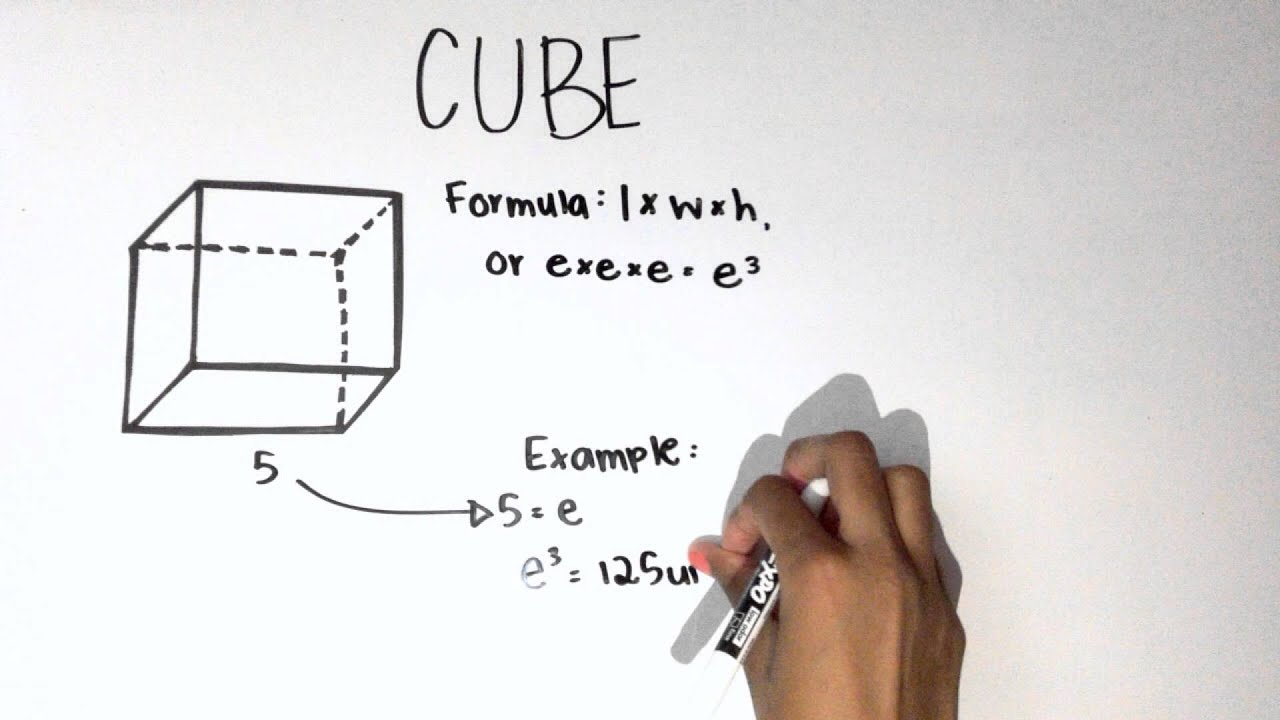 CUBE
Formula: l × w × h,
or e×e×e = e³
5
Example:
5 = e
e³ = 125un
low odor